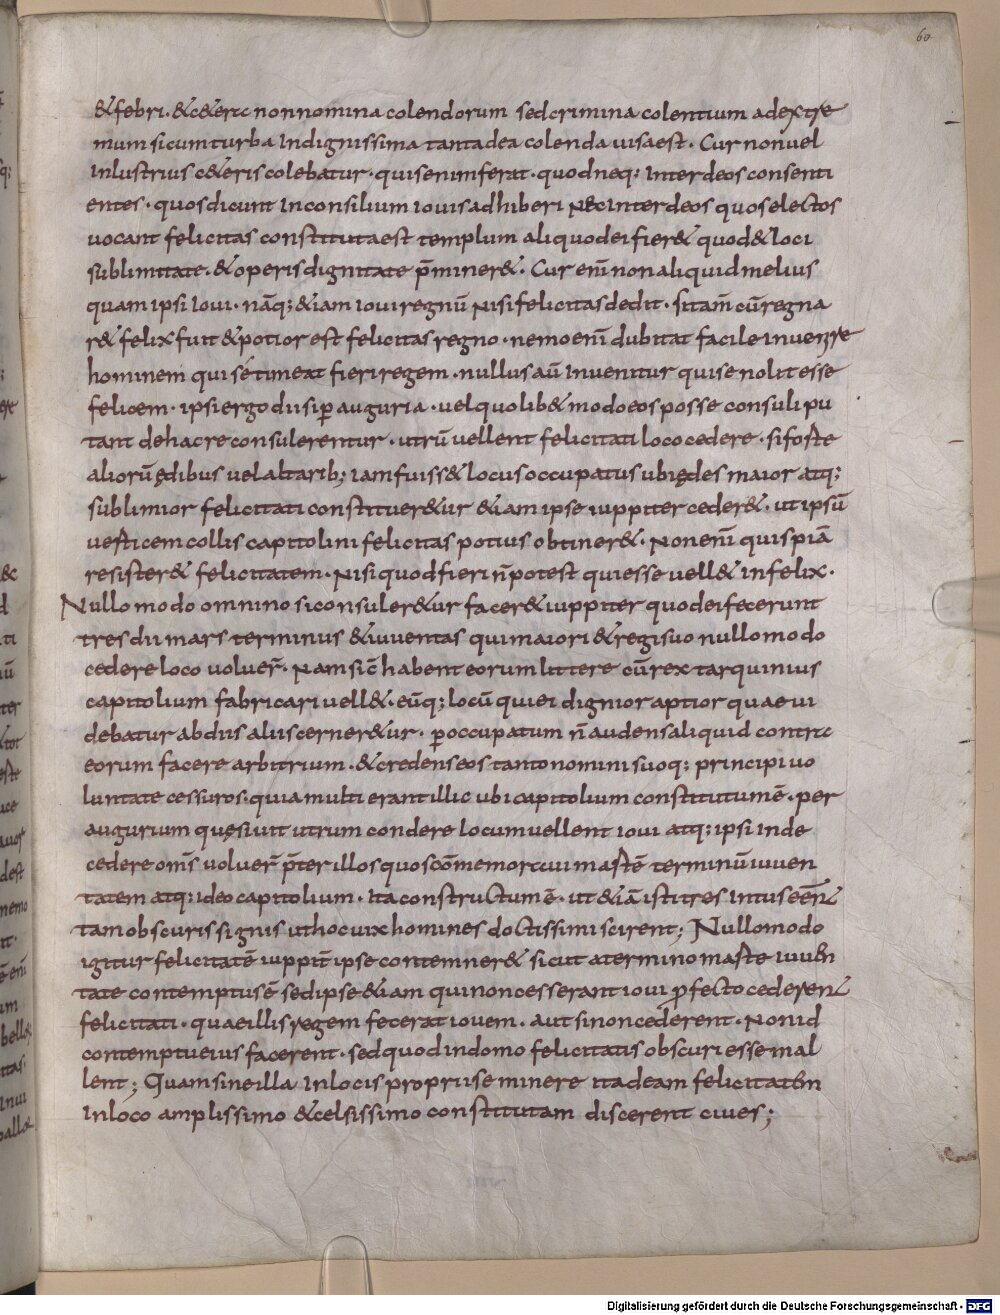 60
& febri. & c&era non nomina colendorum sed crimina colentium ad extre
mum si cum turba indignissima tanta dea colenda uisa est. Cur non uel
inlustrius c&eris colebatur. quis enim ferat. quod neq; inter deos consenti
entes. quos dicunt in consilium iouis adhiberi nec inter deos quos electos
uocant felicitas constituta est templum aliquod ei fier& quod & loci
sublimitate. & operis dignitate p̄miner&. Cur enī non aliquid melius
quam ipsi Ioui. nāq; &iam ioui regnū nisi felicitas dedit. si tam̄ cū regna
r& felix fuit & potior est felicitas regno. nemo enī dubitat facile inuenire
hominem qui se timeat fieri regem. nullus aū inuenitur qui se nolit esse
felicem. ipsi ergo dii si p̲ auguria. uel quolib& modo eos posse consuli pu
tant de hac re consulerentur. utrū uellent felicitati loco cedere. si forte
aliorū ędibus uel altarib; iam fuiss& locus occupatus ubi ędes maior atq;
sublimior felicitati constituer&ur &iam ipse iuppiter ceder&. ut ipsū
uerticem collis capitolini felicitas potius obtiner&. Non enī quispiā
resister& felicitatem. Nisi quod fieri n̄ potest qui esse uell& infelix.
Nullo modo omnino si consuler&ur facer& iuppiter quod ei fecerunt
tres dii mars terminus & iuuentas qui maiori & regi suo nullo modo
cedere loco uoluer̄. Nam sic̄ habent eorum littere cū rex tarquinius
capitolium fabricari uell&. eūq; locū qui ei dignior aptior quae ui
debatur ab diis aliis cerner&ur. p̲occupatum n̄ audens aliquid contra
eorum facere arbitrium. & credens eos tanto nomini suoq; principi uo
luntate cessuros. quia multi erant illic ubi capitolium constitutum ē. per
augurium quęsiuit utrum condere locum uellent ioui atq; ipsi inde
cedere om̄s uoluer̄ p̄ter illos quos cōmemoraui martē terminū iuuen
tatem atq; ideo capitolium. ita constructum ē. ut &iā isti tres intus eēnt
tam obscuris signis ut hoc uix homines doctissimi scirent; Nullo modo
igitur felicitatē iuppit̄ ipse contemner& sicut a termino marte iuuen
tate contemptus ē sed ipse &iam qui non cesserant ioui ꝓfecto cederent
felicitati. quae illis regem fecerat iouem. aut si non cederent. Non id
contemptu eius facerent. sed quod in domo felicitatis obscuri esse mal
lent; Quam sine illa in locis propriis eminere ita deam felicitatem
in loco amplissimo & celsissimo constitutam discerent ciues;
Digitalisierung gefördert durch die Deutsche Forschungsgemeinschaft - DFG